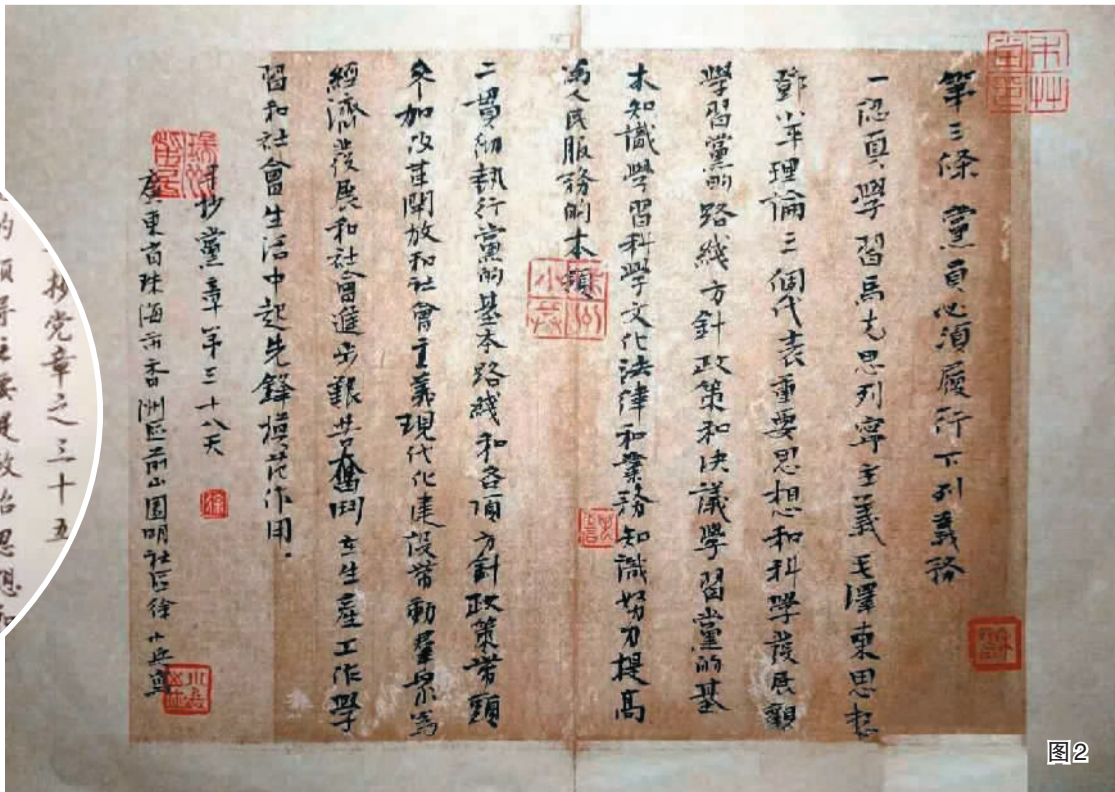 第三條 黨員必須履行下列義務
一認真學習馬克思列寧主義毛澤東思想
鄧小平理論三個代表重要思想和科學發展觀
學習黨的路綫方針政策和决議學習黨的基
本知識學習科學文化法律和業務知識努力提高
爲人民服務的本領
二貫彻執行黨的基本路綫和各項方針政策带頭
參加改革開放和社會主義現代化建設带動羣眾爲
經濟發展和社會進步艱苦奮鬥在生産工作學
習和社會生活中起先鋒模范作用.
手抄黨章第三十八天
廣東省珠海市香洲區前山圓明社區徐小兵
抄党章之三十五
的领导主要是政治思想和
图2